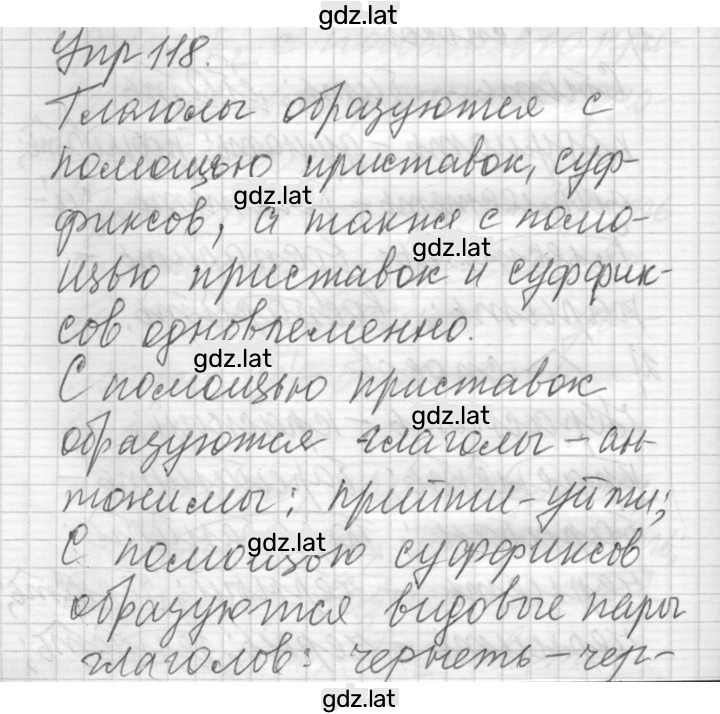 gdz.lat
Упр 118.
Глаголы образуются с
помощью приставок, суф-
gdz.lat
фиксов, а также с помо-
gdz.lat
щью приставок и суффик-
сов одновременно.
gdz.lat
С помощью приставок
gdz.lat
образуются глаголы - ан-
тонимы: прийти - уйти;
gdz.lat
С помощью суффиксов
образуются видовые пары
глаголов: чернеть - чер-
gdz.lat